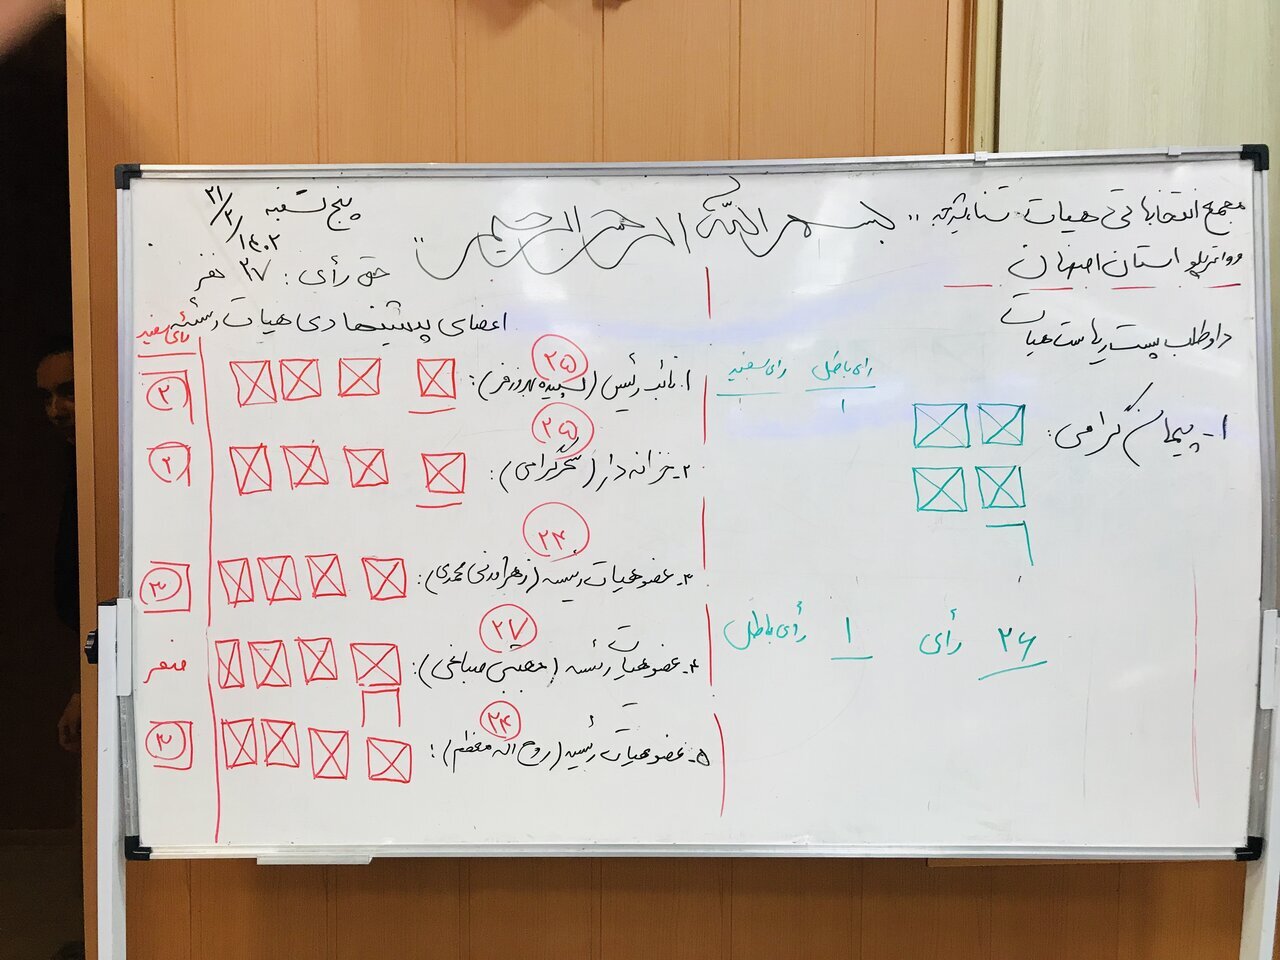 بسم الله الرحمن الرحیم
مجمع انتخاباتی هیات شنا، شیرجه
و واترپلو استان اصفهان
داوطلب پست ریاست هیات
۱- پیمان گرامی:
رای باطل رای سفید
۱
۲۶ رأی ۱ رأی باطل
پنج شنبه ۲۱/۲/۱۴۰۲
حق رأی: ۲۷ نفر
اعضای پیشنهادی هیات رئیسه
رای سفید
۱. نائب رئیس (سپیده بهروزفر): ۲۵ ۲
۲- خزانه دار (سحر گرامی): ۲۵ ۲
۳- عضو هیات رئیسه (زهرا محمدی): ۲۴ ۳
۴- عضو هیات رئیسه (مجتبی صباغی): ۲۷ صفر
۵- عضو هیات رئیسه (روح اله معظم): ۲۴ ۳